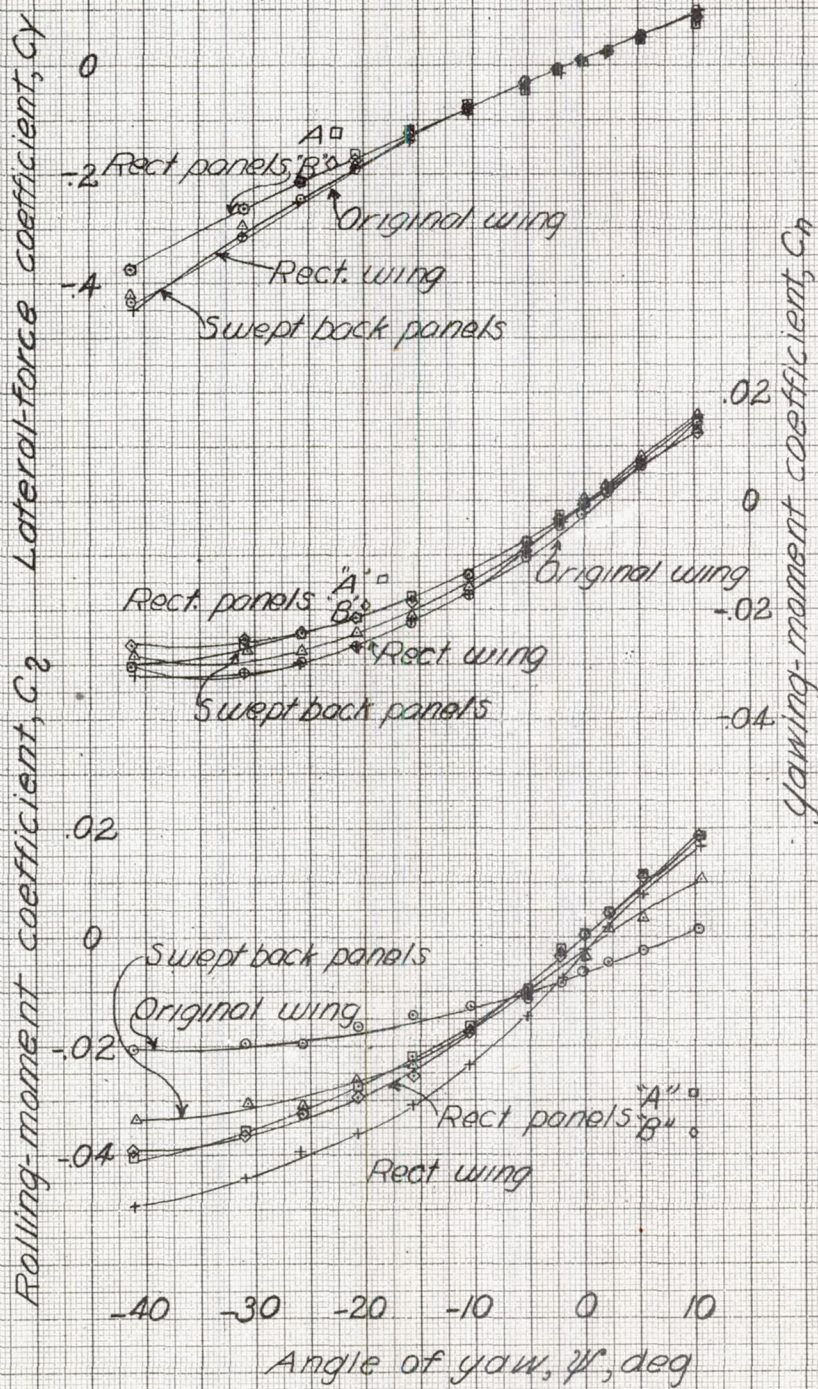 Lateral-force coefficient, Cy
0
-.2
-.4
A
Rect panels "B"
Original wing
Rect. wing
Swept back panels
Yawing-moment coefficient, Cn
.02
0
-.02
-.04
"A"
Rect. panels "B"
Original wing
Rect. wing
Swept back panels
Rolling-moment coefficient, Cl
.02
0
-.02
-.04
Swept back panels
Original wing
"A"
Rect panels "B"
Rect wing
-40 -30 -20 -10 0 10
Angle of yaw, ψ, deg